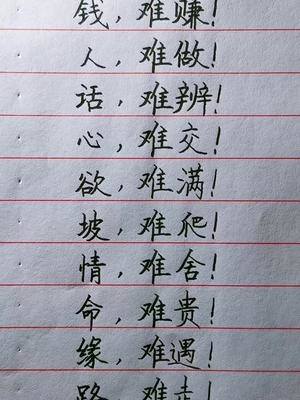 钱，难赚！
人，难做！
话，难辨！
心，难交！
欲，难满！
坡，难爬！
情，难舍！
命，难贵！
缘，难遇！
路，难走！